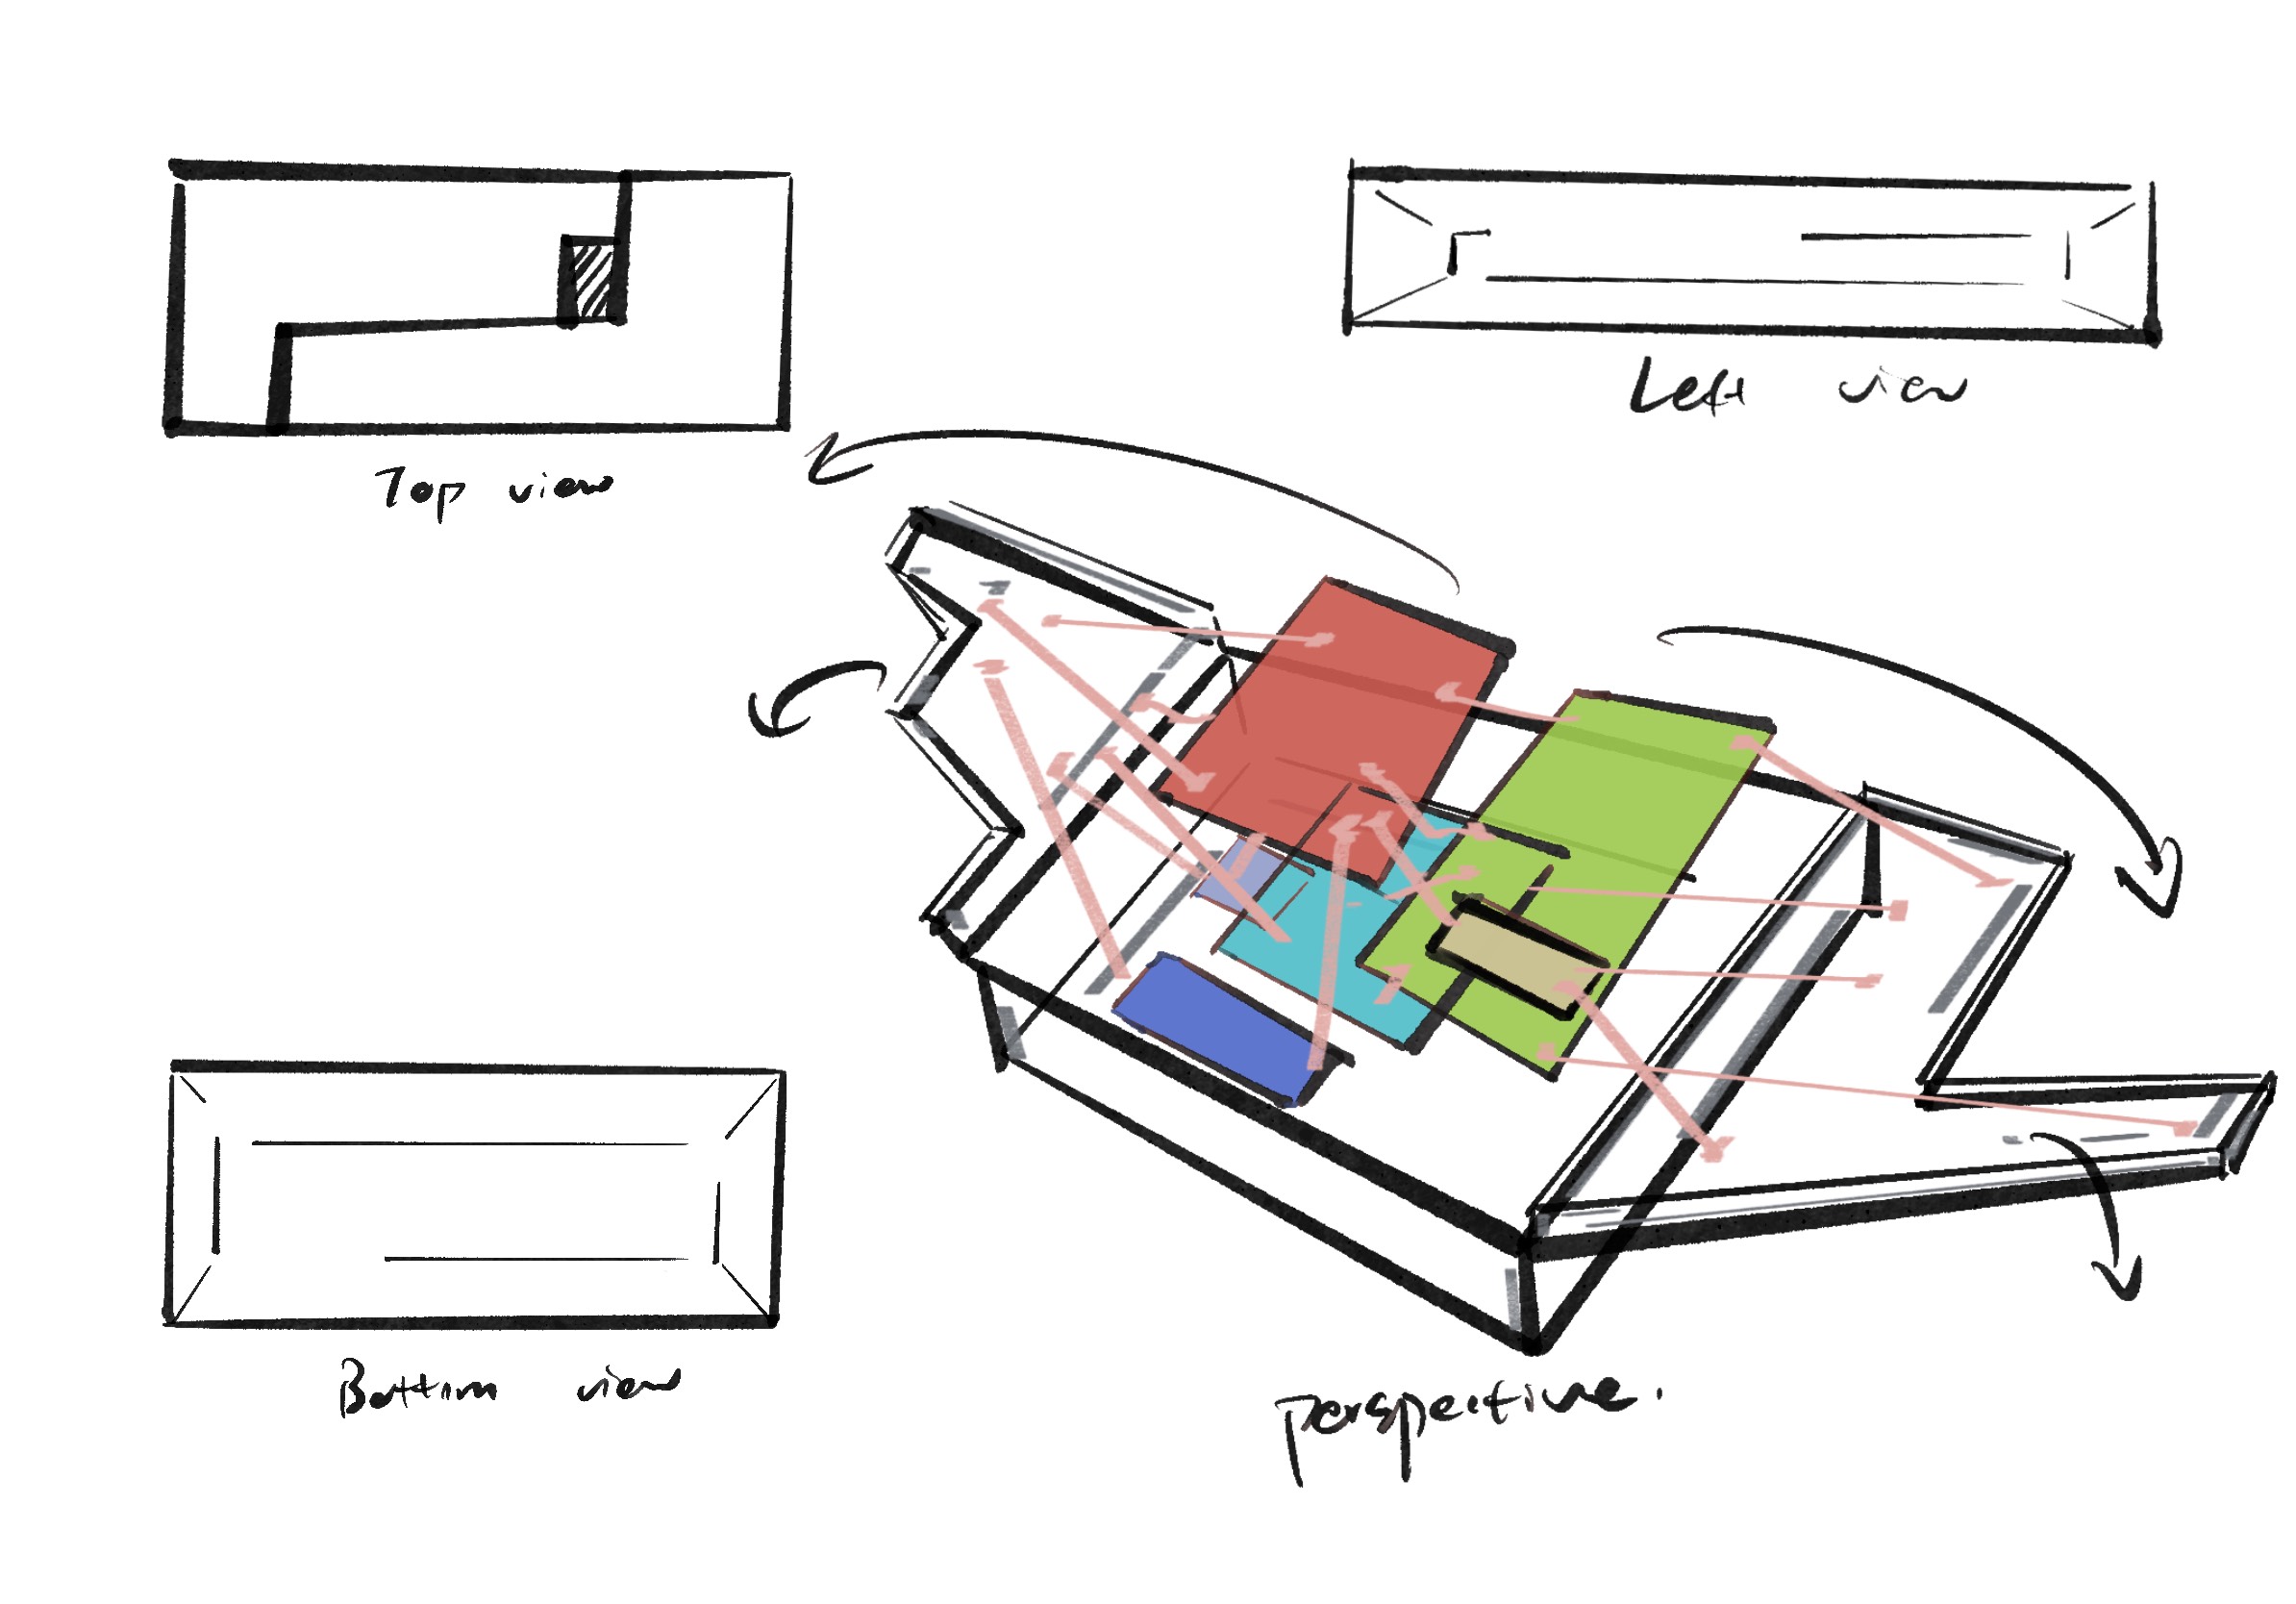 Top view
Left view
Bottom view
perspective.